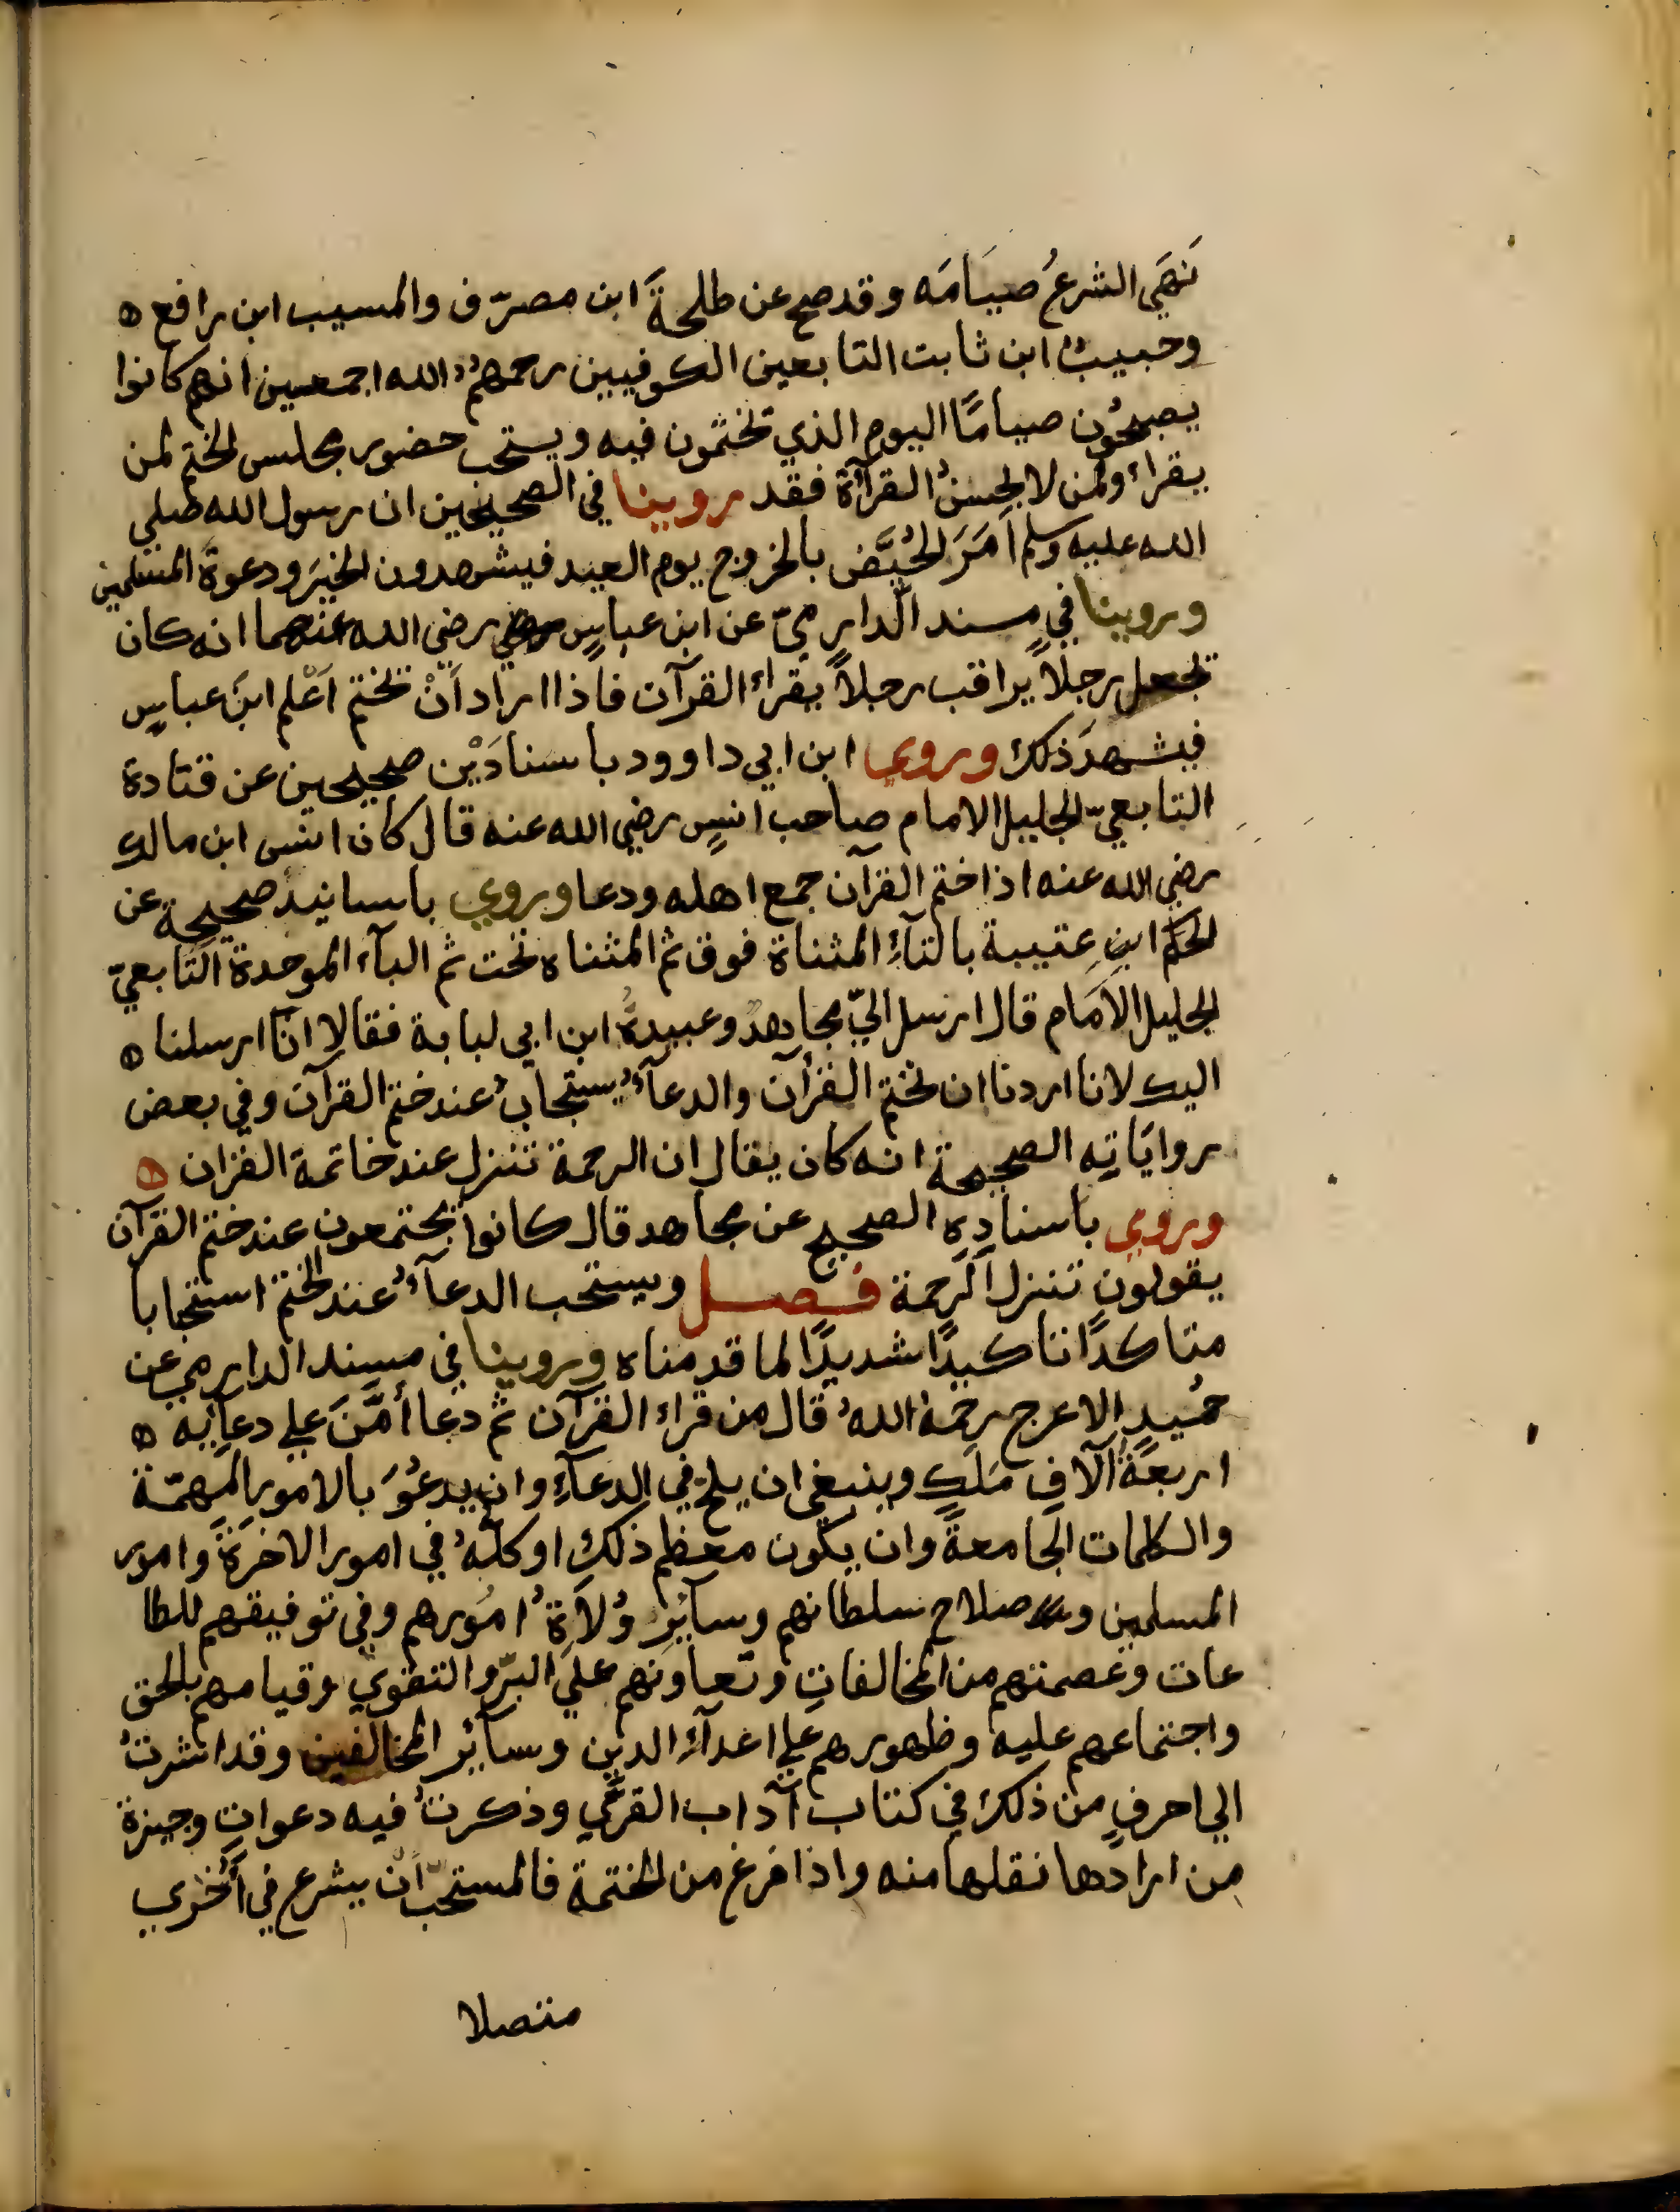 نَهَي الشرعُ صيَامَه وقد صح عن طلحةَ ابن مصرّف والمسيب ابن رافع ه
وحبيبُ ابن ثابت التابعين الكوفيين رحمهمُ الله اجمعين انهم كانوا
يصبحُون صيامًا اليوم الذي تختمون فيه ويستحب حضور مجلس الختم لمن
يقراء ولمن لا يحسنُ القرآة فقد روينا في الصحيحين ان رسول الله صلي
الله عليه وسلم اَمَرَ الحُيَّض بالخروج يوم العيد فيشهدون الخيَر ودعوة المسلمين
وروينا في مسند الّدارِميّ عن ابن عباسٍ رضي الله عنهما انه كان
يجعل رجلًا يراقب رجلاً يقراء القرآن فاذا اراد اَنْ يختم اَعْلم ابنَ عباسٍ
فيشهدَ ذلك وروي ابن ابي داوود باسنادَيْن صحيحين عن قتادة
التابعيّ الجليل الامام صاحب انسٍ رضي الله عنه قال كان انس ابن مالك
رضي الله عنه اذا ختم القرآن جمع اهله ودعا وروي باسانيد صحيحة عن
الحكم ابنِ عتيبة بالتآءِ المثناة فوق ثم المثناه تحت ثم البآء الموحدة التابعيّ
الجليل الاَمَام قال ارسل اليّ مجاهدٌ وعبيدةُ ابن ابي لبابة فقالا انّا ارسلنا ه
اليك لانا اردنا ان نختم القرآن والدعآءُ يستجابُ عند ختم القرآن وفي بعض
روايَاتِه الصحيحة انه كان يقال ان الرحمة تنزل عند خاتمة القران ه
وروي باسنادِهِ الصحيح عن مجاهد قال كانوا يجتمعون عند ختم القرآن
يقولون تنزل الَرحمة فصل ويستحب الدعآءُ عند الختم استحبابا
متاكدًا تاكيدًا شديدًا لما قدمناه وروينا في مسند الدارِمي عن
حُميدٍ الاعرج رحمهُ اللهُ قال من قراء القرآن ثم دعا أمَّنَ علي دعآيه ه
اربعةُ آلافِ مَلَكٍ وينبغي ان يلحّ في الدعآءِ وان يدعُوَ بالامور المهمّة
والكلمات الجامعة وان يكون معظم ذلك او كلّهُ في امور الاخرة وامور
المسلمين وصلاح سلطانهم وسآئرِ وُلاَةِ امُورهم وفي توفيقهم للطا
عات وعصمتهم من المخالفات وتعاونهم علَي البرّ والتقوي وقيامهم بالحق
واجتماعهم عليه وظهورهم علي اعدآء الدين وسآئر المخالفين وقد اشرتُ
الي احرفٍ من ذلك في كتاب آداب القرّي وذكرتُ فيه دعواتٍ وجيزة
من ارادها نقلها منه واذا فرغ من الختمة فالمستحبّ انْ يشرع في أُخري
متصلا